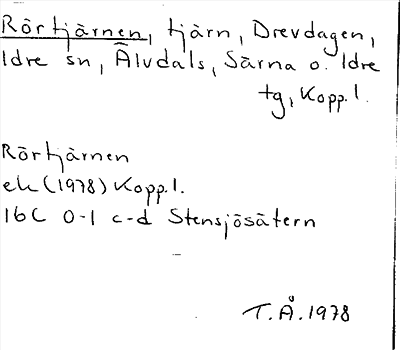 Rörtjärnen, tjärn, Drevdagen,
Idre sn, Älvdals, Särna o. Idre
tg, Kopp. l.
Rörtjärnen
ek (1978) Kopp. l.
16C 0-1 c-d Stensjösätern
T.Å. 1978